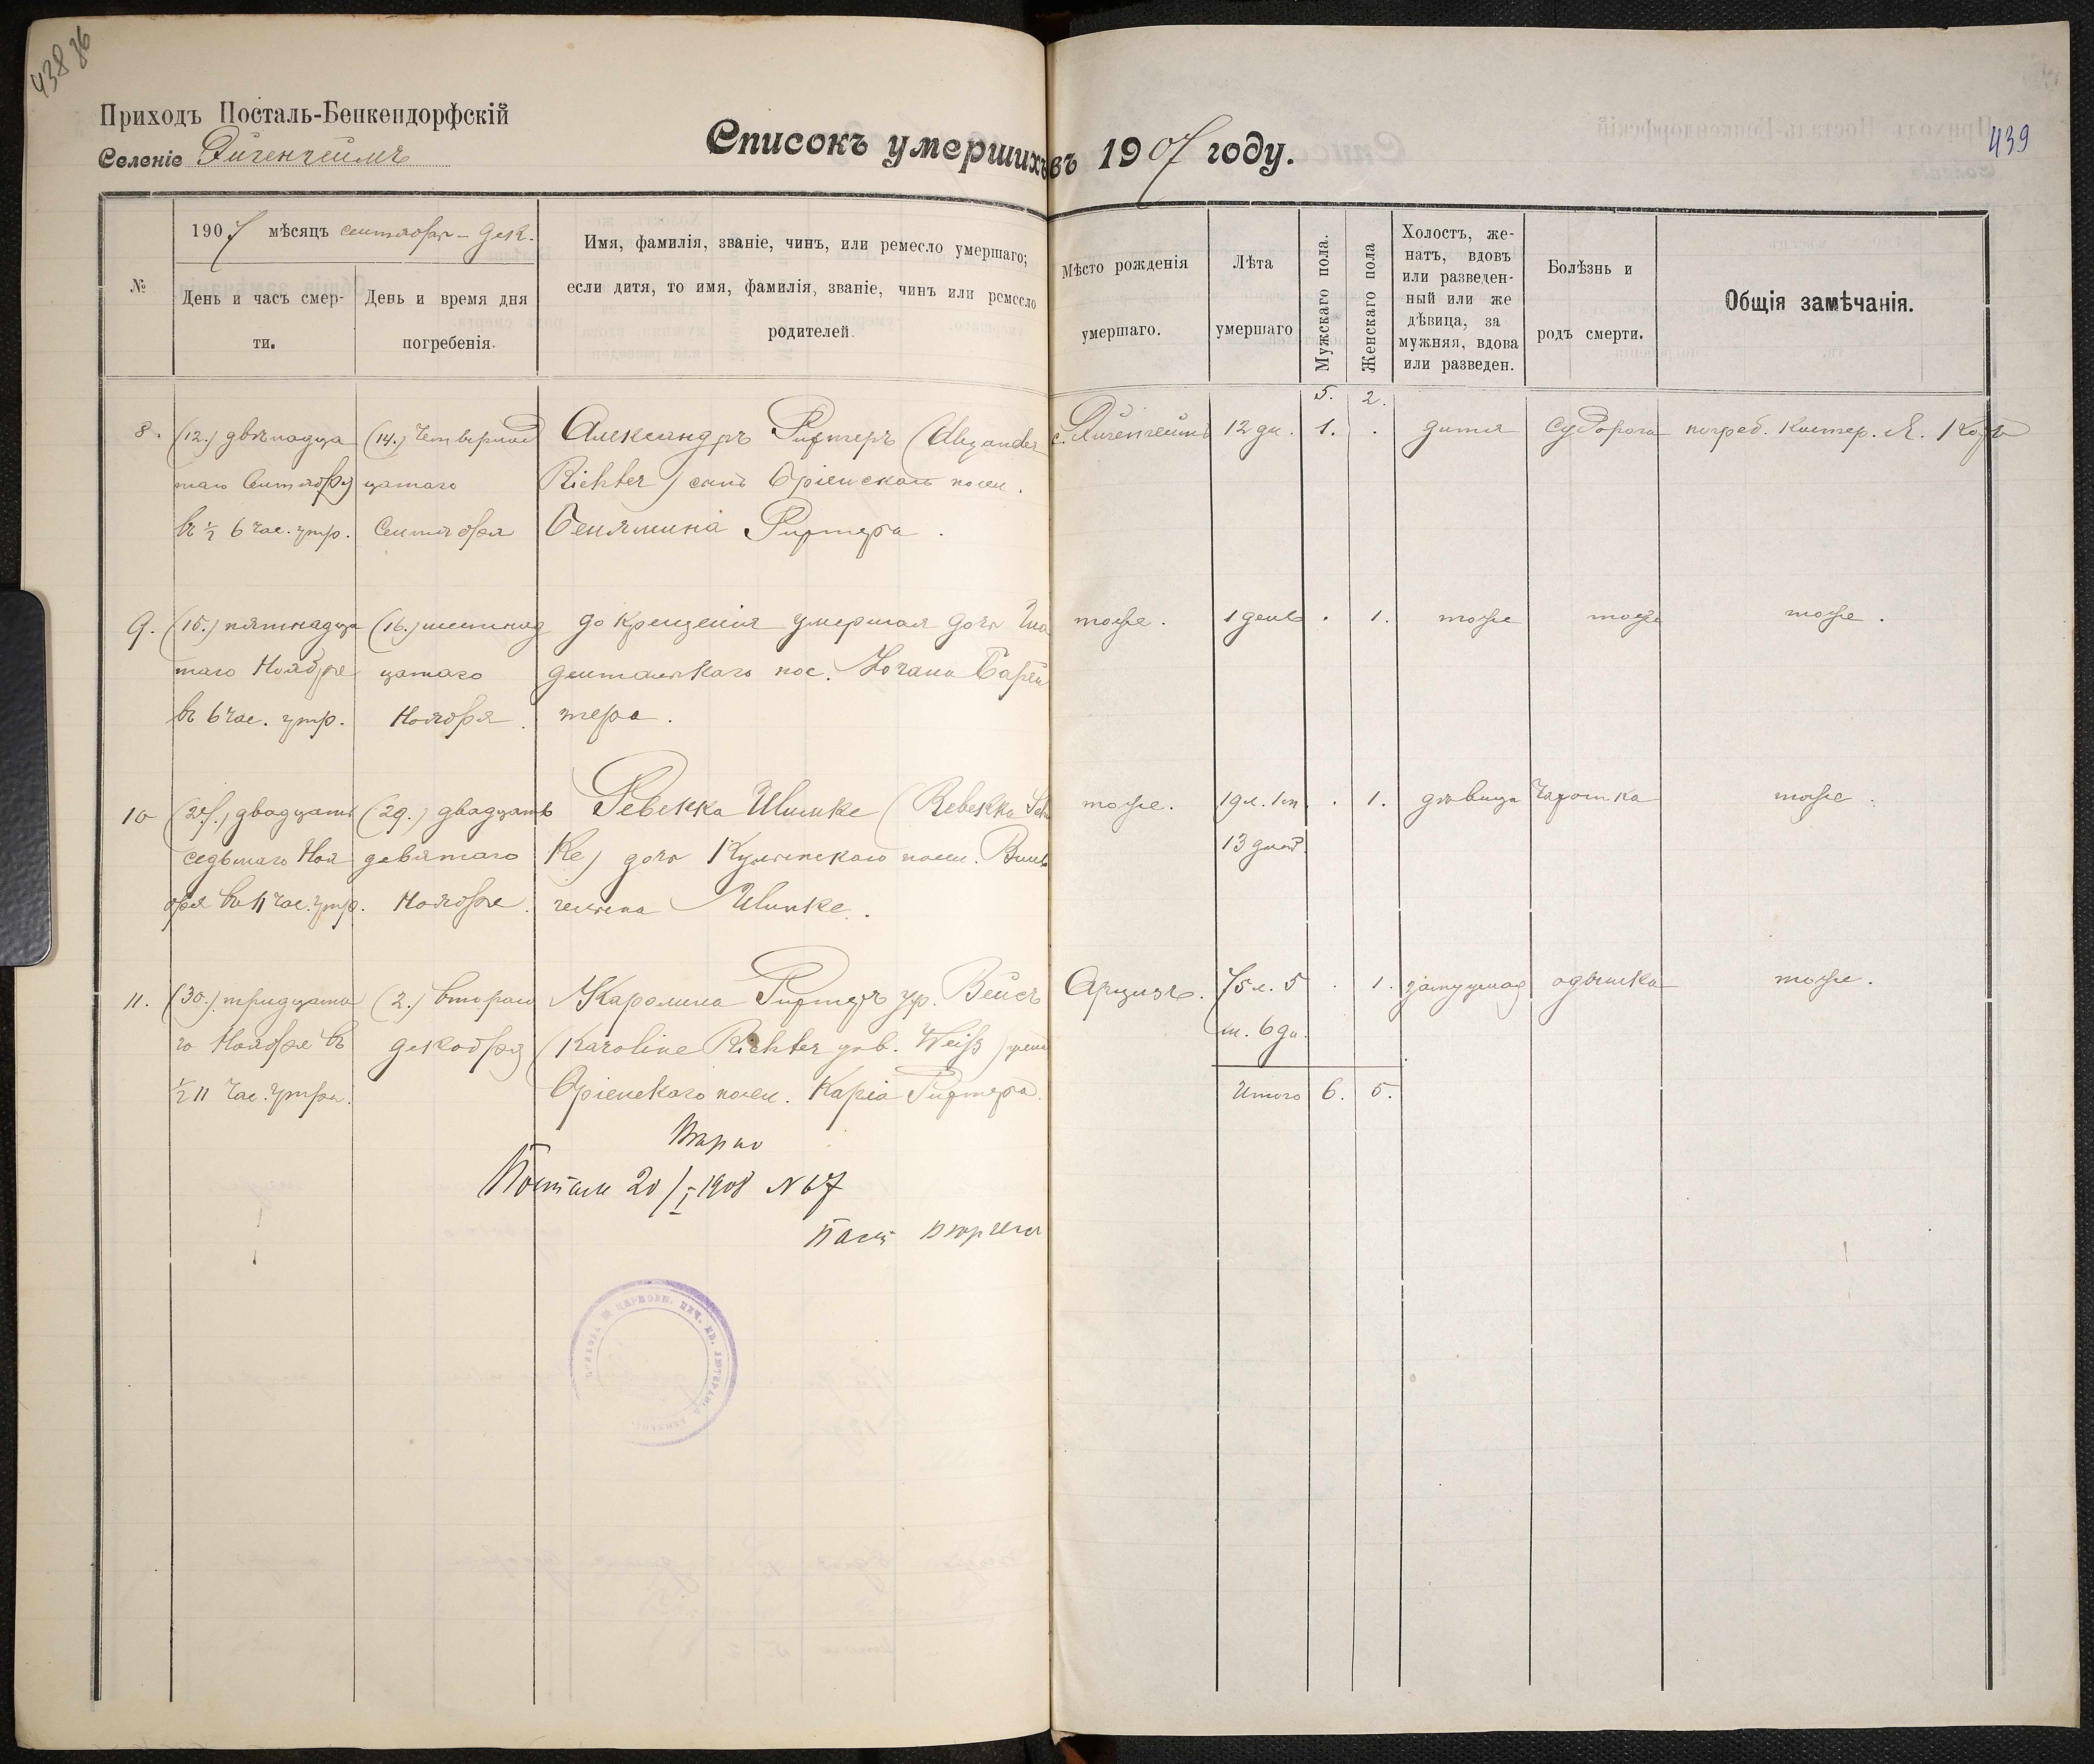 438 86
439
Приходъ Посталь-Бенкендорфскій
Селеніе Эйгенгеймъ
Списокъ умершихъ въ 1907 году.
№
1907 мѣсяцъ сентября - дек.
День и часъ смерти.
День и время дня погребенія.
Имя, фамилія, званіе, чинъ, или ремесло умершаго; если дитя, то имя, фамилія, званіе, чинъ или ремесло родителей.
Мѣсто рожденія умершаго.
Лѣта умершаго
Мужскаго пола.
Женскаго пола
Холостъ, женатъ, вдовъ или разведенный или же дѣвица, замужняя, вдова или разведен.
Болѣзнь и родъ смерти.
Общія замѣчанія.
5. 2.
8. (12.) двѣнадца (14.) Четырнад Александръ Рихтеръ (Alexander с. Эйгенгеймъ 12 дн. 1. . дитя судорога погреб. Кистер. Я.
таго Сентября цатаго Richter) сынъ Бріенскаго посел.
въ ½ 6 час. утр. Сентября Беніамина Рихтера.
9. (15.) пятнадца (16.) шестнад до крещенія умершая дочь Гна тоже. 1 день . 1. тоже тоже тоже.
таго Ноября цатаго дентальскаго пос. Іогана
въ 6 час. утр. Ноября. тера.
10 (27.) двадцать (29.) двадцать Ревекка Шимке (Rebekka Schim тоже. 1 дл. 1 м. . 1. дѣвица Чахотка тоже.
седьмаго Ноя девятаго ke) дочь Кульмскаго посел. Виль 13 дней.
бря въ 11 час. утр. Ноября. гельма Шимке.
11. (30.) тридцата (2.) втораго Каролина Рихтеръ ур. Вейсъ Арцизъ. 75 л. 5 . 1. замужная одышка тоже.
го Ноября въ декабря (Karoline Richter geb. Weiß) жена м. 6 дн.
½ 11 час. утра. Бріенскаго посел. Карла Рихтера.
Итого 6. 5.
Вѣрно
Посталь 20/I 1908 № 67
Паст